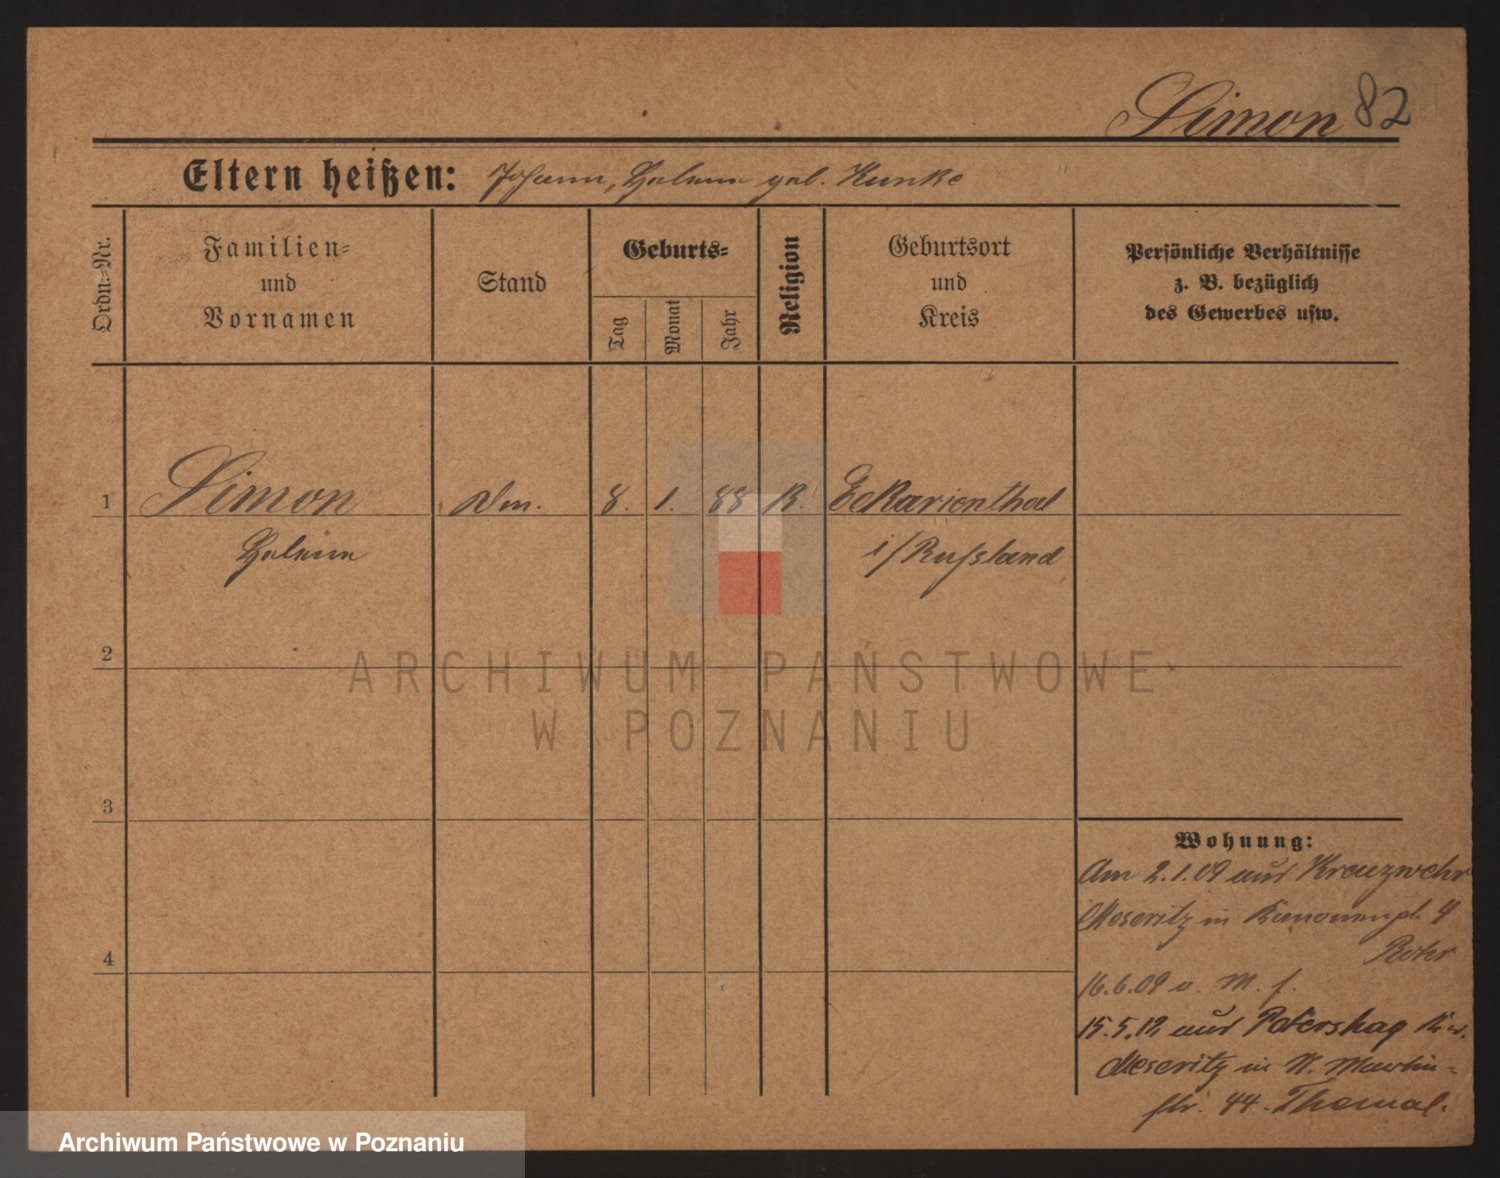 Simon 82
Eltern heißen: Johann, Helene geb. Kunke
Ordn.-Nr.
Familien-
und
Vornamen
Stand
Geburts-
Tag
Monat
Jahr
Religion
Geburtsort
und
Kreis
Persönliche Verhältnisse
z. B. bezüglich
des Gewerbes usw.
1 Simon 8. 1. 88 K. Eckarienthal
Helene i/Russland
2
3
4
Wohnung:
Am 2.1.09 aus Kreuzwehr
Meseritz in 4
16.6.09 v. M. f.
15.5.12 aus Petershag Kr.
Meseritz in St. Martin-
str. 44.
ARCHIWUM PAŃSTWOWE
W POZNANIU
Archiwum Państwowe w Poznaniu